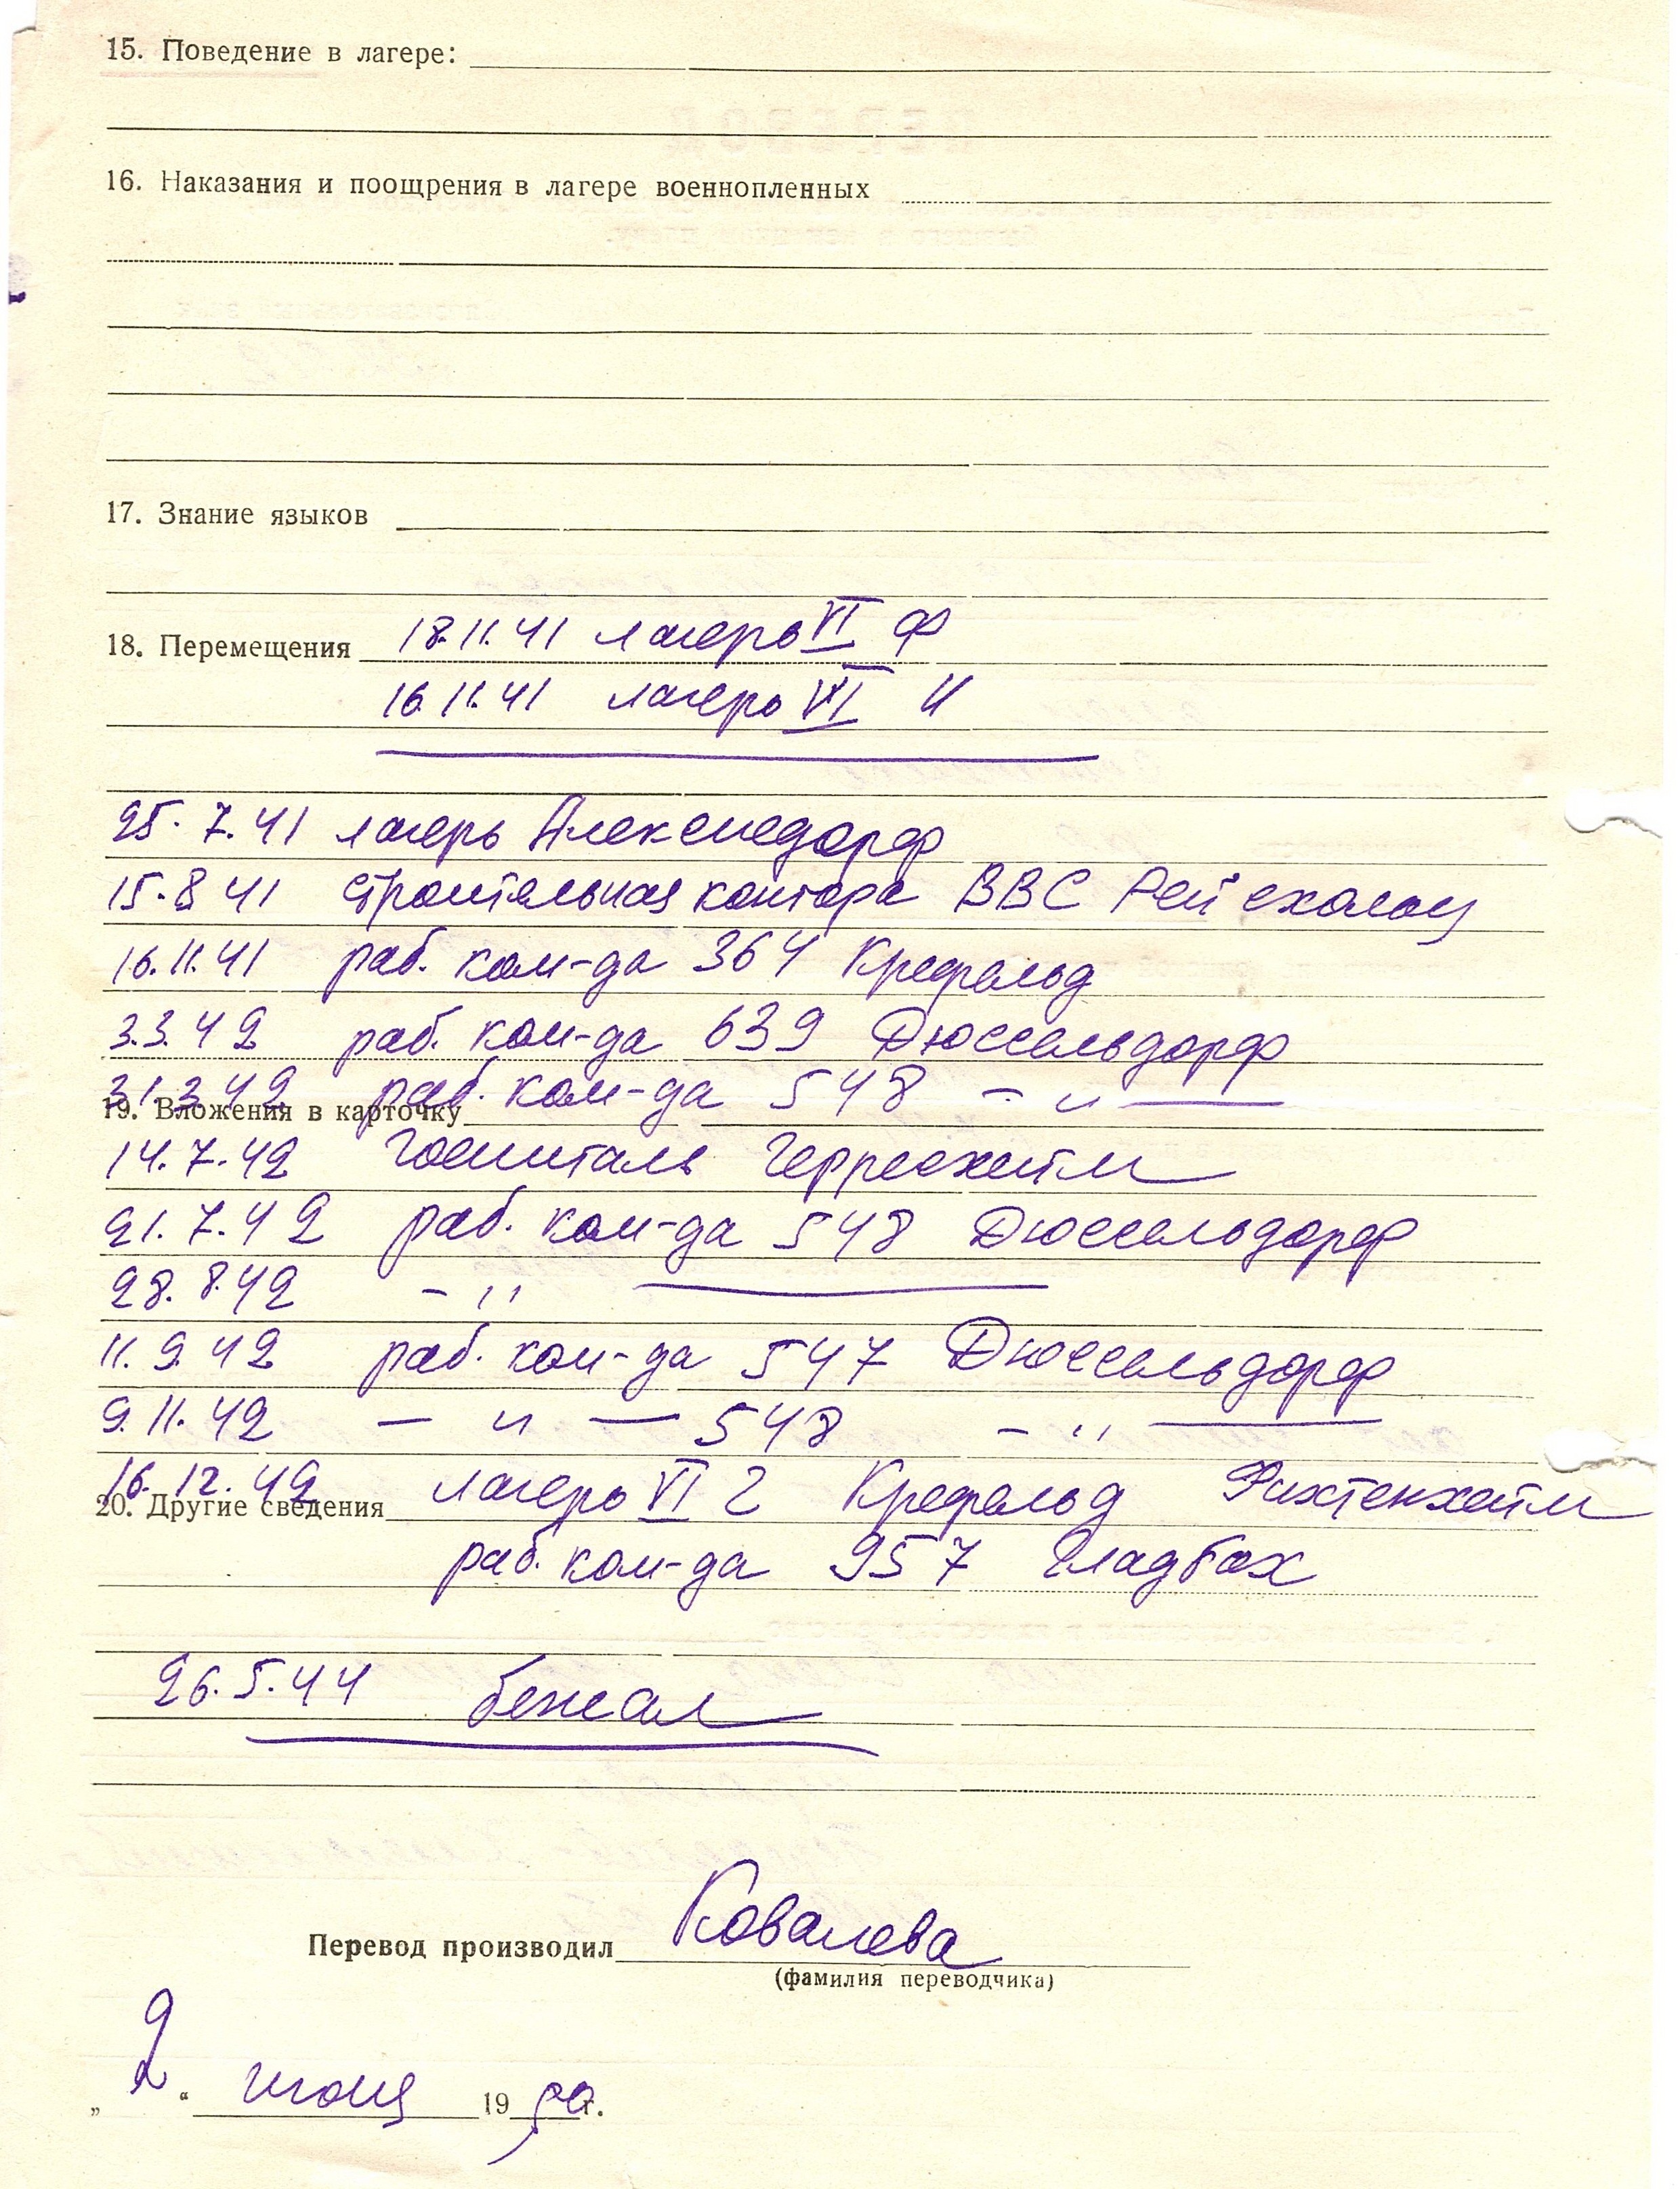 15. Поведение в лагере:
16. Наказания и поощрения в лагере военнопленных
17. Знание языков
18. Перемещения 18.11.41 лагерь VI Ф
16.11.41 лагерь VI И
25.7.41 лагерь Алексисдорф
15.8 41 строительная контора ВВС Рейсхольц
16.11.41 раб. ком-да 364 Крефельд
3.3.42 раб. ком-да 639 Дюссельдорф
31.3.42 раб. ком-да 548 – " –
19. Вложения в карточку
14.7.42 госпиталь Герресхейм
21.7.42 раб. ком-да 548 Дюссельдорф
28.8.42 – " –
11.9.42 раб. ком-да 547 Дюссельдорф
9.11.42 – " – 548 – " –
16.12.42 лагерь VI 2 Крефельд Фихтенхейм
20. Другие сведения
раб. ком-да 957 Гладбах
26.5.44 бежал
Перевод производил Ковалева
(фамилия переводчика)
„ 2 “ июня 19 г.